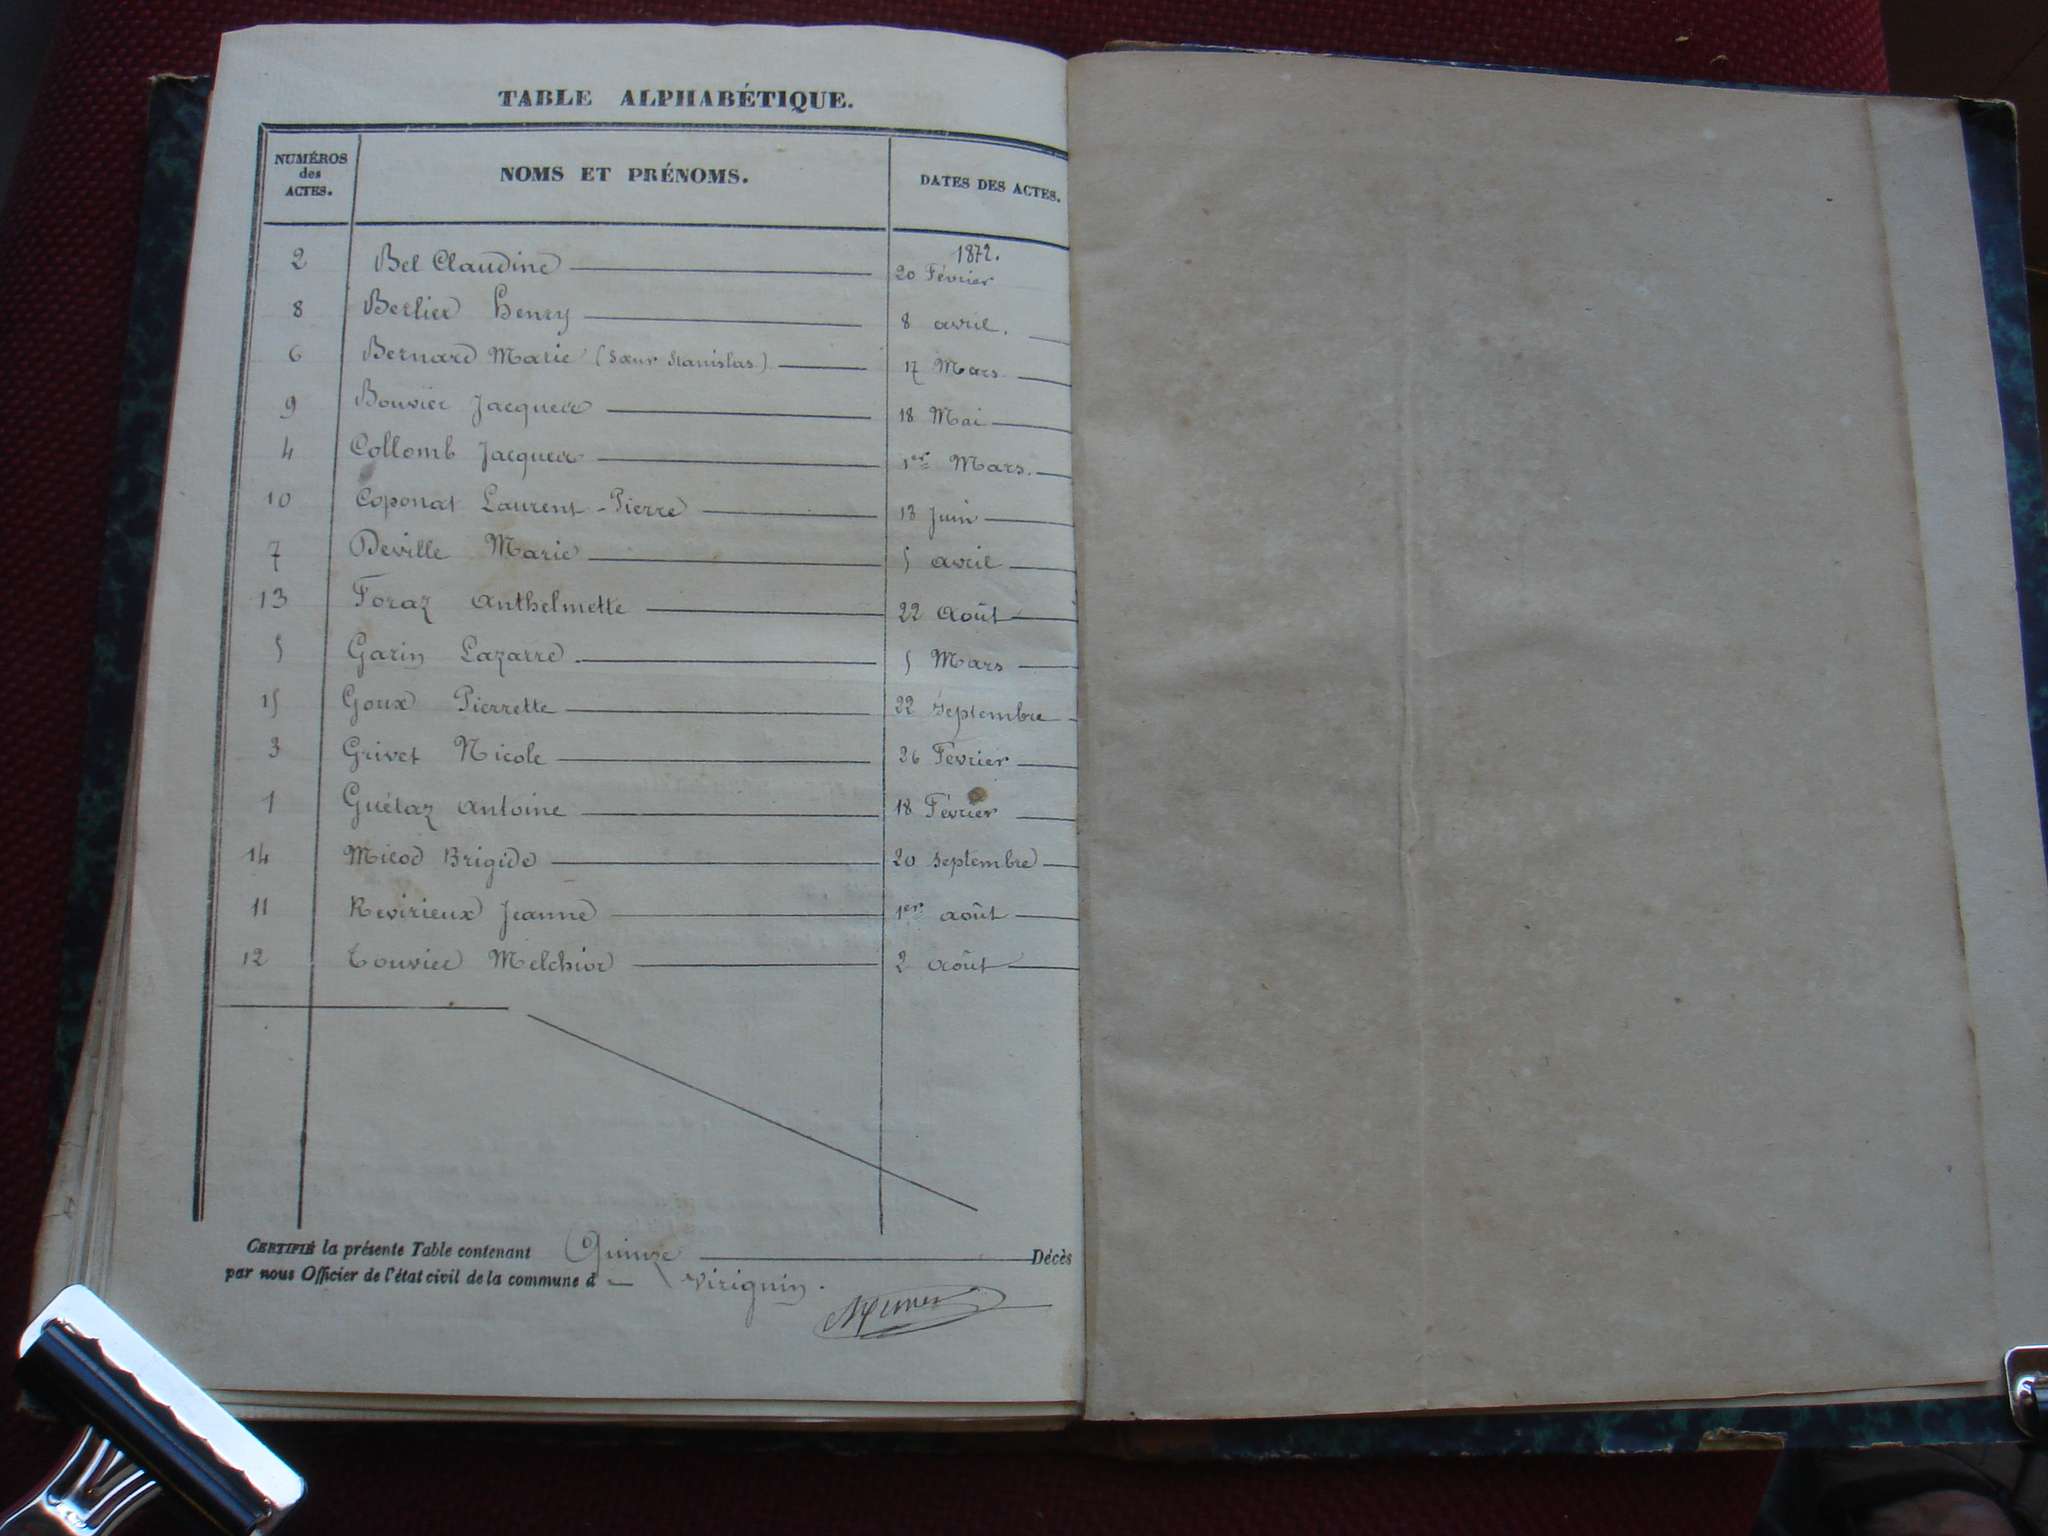 TABLE ALPHABÉTIQUE.
NUMÉROS des ACTES. NOMS ET PRÉNOMS. DATES DES ACTES.
1872.
2 Bel Claudine 20 Février
8 Berlier henry 8 avril.
6 Bernard Marie (Sœur Stanislas) 17 Mars
9 Bouvier Jacques 18 Mai
4 Collomb Jacques 1er Mars.
10 Coponat Laurent-Pierre 13 Juin
7 Deville Marie 5 avril
13 Foraz Anthelmette 22 Août
5 Garin Lazarre. 5 Mars
15 Goux Pierrette 22 Septembre
3 Grivet Nicole 26 Février
1 Guétaz Antoine 18 Février
14 Micod Brigide 20 Septembre
11 Revirieux Jeanne 1er août
12 Touvier Melchior 2 Août
CERTIFIÉ la présente Table contenant Quinze Décès
par nous Officier de l'état civil de la commune d Virignin.